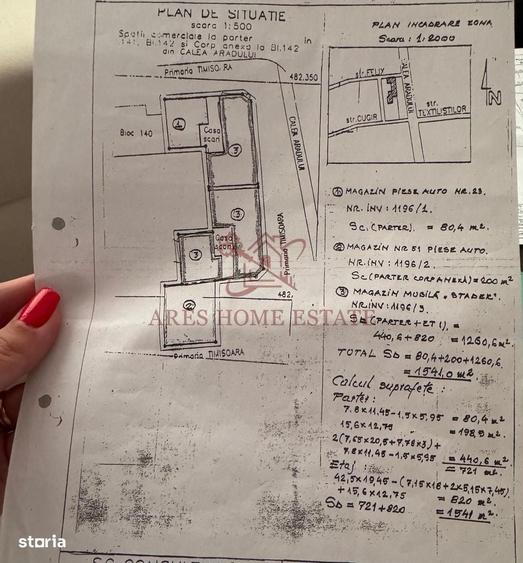 PLAN DE SITUATIE
scara 1:500
Spatii comerciale la parter in
141, Bl.142 si Corp anexa la Bl.142
din CALEA ARADULUI
Primaria TIMISOARA
482.350
Bloc 140
1
Casa
scari
3
CALEA ARADULUI
3
Casa
scari
3
Primaria TIMISOARA
2
482.
Primaria TIMISOARA
PLAN INCADRARE ZONA
Scara : 1:2000
str. FELIX
CALEA ARADULUI
str.
TEXTILISTILOR
str. CUGIR
N
① MAGAZIN PIESE AUTO NR.23.
NR. INV : 1196/1.
Sc. (PARTER). = 80,4 m².
② MAGAZIN NR 51 PIESE AUTO.
NR.INV : 1196/2.
Sc (PARTER CORP ANEXĂ) = 200 m²
③ MAGAZIN MOBILĂ "STADER".
NR.INV : 1196/3.
SD (PARTER + ET I), =
440,6 + 820 = 1260,6 m²
TOTAL SD = 80,4+200+1260,6.
= 1541,0 m²
Calcul suprafețe :
Parter:
7.8x11,45-1,5x5,95 = 80,4 m²
15,6x12,75 = 198,9 m².
2(7,65x20,5+7,78x3)+
7.8x11,45-1.5x5,95 = 440,6 m²
= 721 m².
Etaj :
42,5x19,45-(7,15x18+2x5,15x7,45)
+15,6x12,75 = 820 m²
SD = 721+820 = 1541 m².
ARES HOME ESTATE
storia